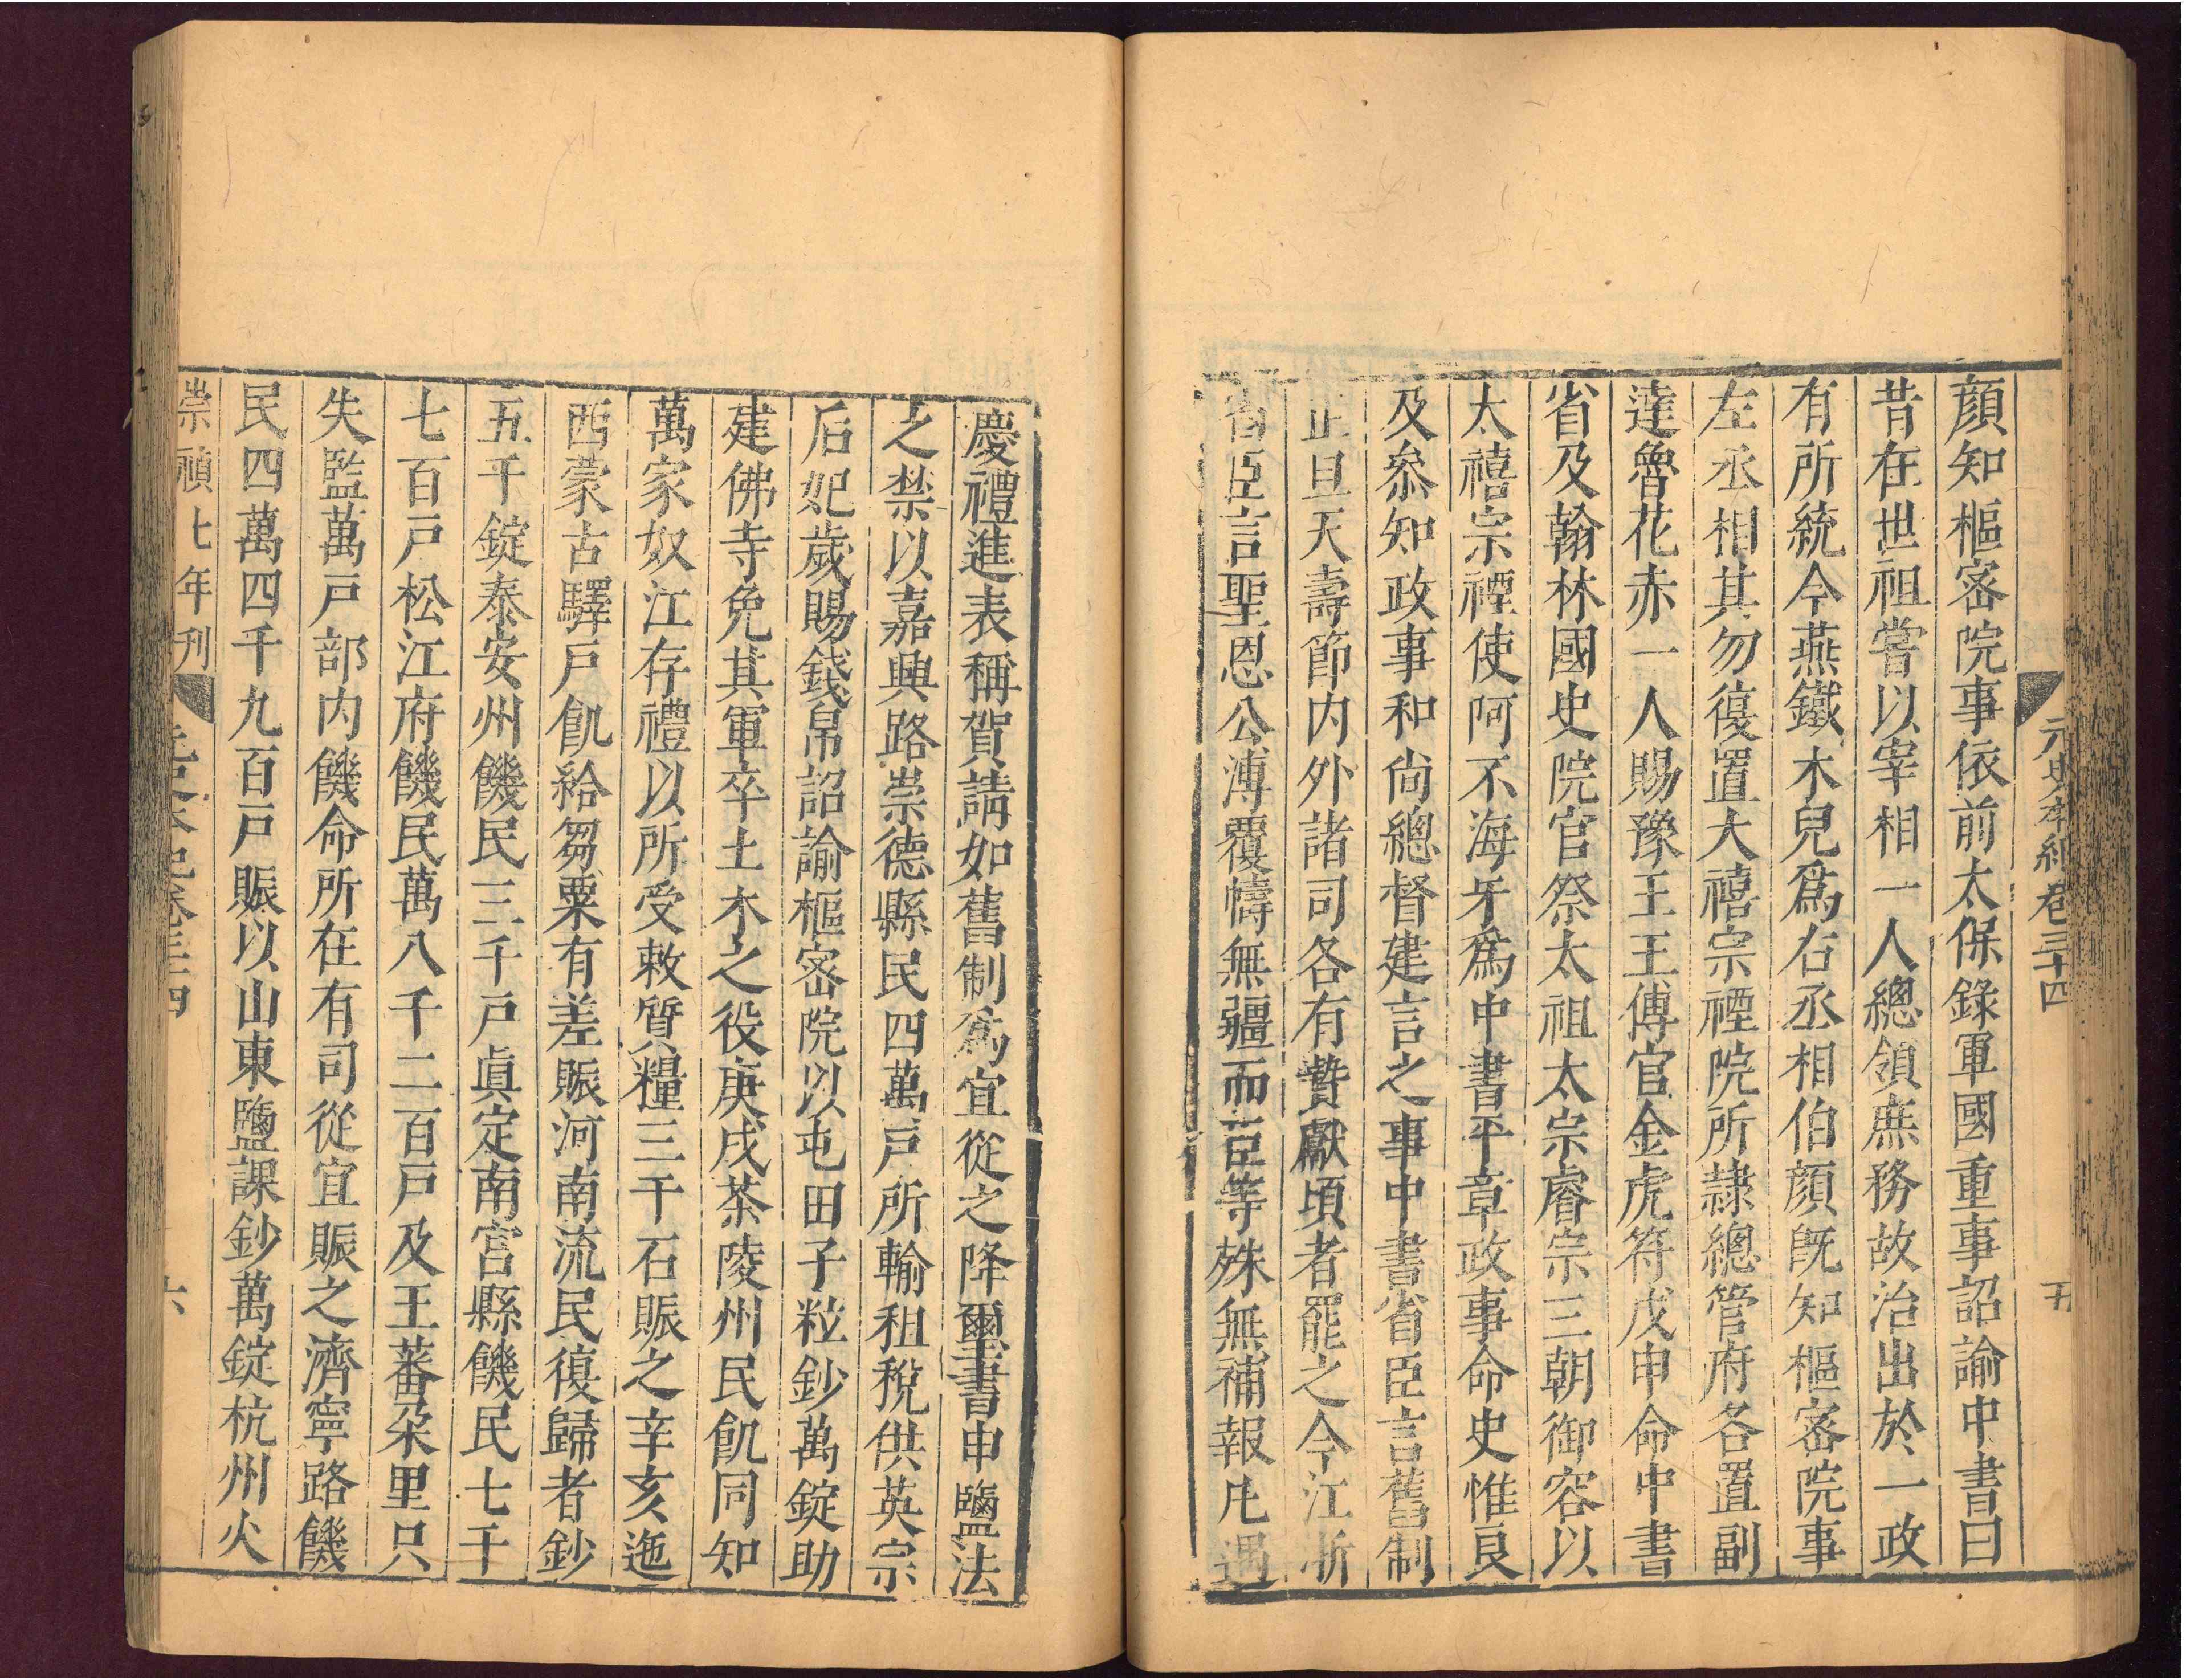 元史本紀卷三十四　五
顏知樞密院事依前太保錄軍國重事詔諭中書曰
昔在世祖嘗以宰相一人總領庶務故治出於一政
有所統今燕鐵木兒爲右丞相伯顏旣知樞密院事
左丞相其勿復置大禧宗禋院所隷總管府各置副
達魯花赤一人賜豫王王傅官金虎符戊申命中書
省及翰林國史院官祭太祖太宗睿宗三朝御容以
太禧宗禋使阿不海牙爲中書平章政事命史惟良
及叅知政事和尙總督建言之事中書省臣言舊制
正旦天壽節内外諸司各有贄獻頃者罷之今江浙
省臣言聖恩公溥覆幬無疆而臣等殊無補報凡遇
慶禮進表稱賀請如舊制爲宜從之降璽書申鹽法
之禁以嘉興路崇德縣民四萬戸所輸租稅供英宗
后妃歲賜錢帛詔諭樞密院以屯田子粒鈔萬錠助
建佛寺免其軍卒土木之役庚戌茶陵州民飢同知
萬家奴江存禮以所受敕質糧三千石賑之辛亥迤
西蒙古驛戸飢給芻粟有差賑河南流民復歸者鈔
五千錠泰安州饑民三千戸眞定南宫縣饑民七千
七百戸松江府饑民萬八千二百戸及王蕃朶里只
失監萬戸部内饑命所在有司從宜賑之濟寧路饑
民四萬四千九百戸賑以山東鹽課鈔萬錠杭州火
崇禎七年刊　元史本紀卷三十四　六